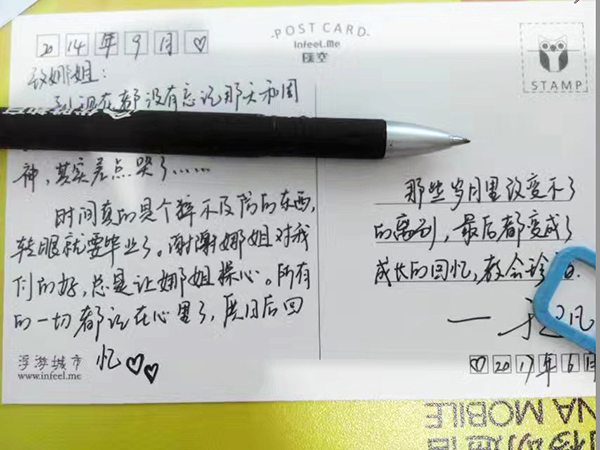 2014年9月♡
POST CARD
Infeel.Me
致娜姐:
到现在都没有忘记那天和周
神,其实差点哭了……
时间真的是个猝不及防的东西,
转眼就要毕业了。谢谢娜姐对我
们的好,总是让娜姐操心。所有
的一切都记在心里了,供日后回
忆♡♡
浮游城市
www.infeel.me
STAMP
那些岁月里改变不了
的离别,最后都变成了
成长的回忆,教会
一
♡2017年6月
NA MOBILE